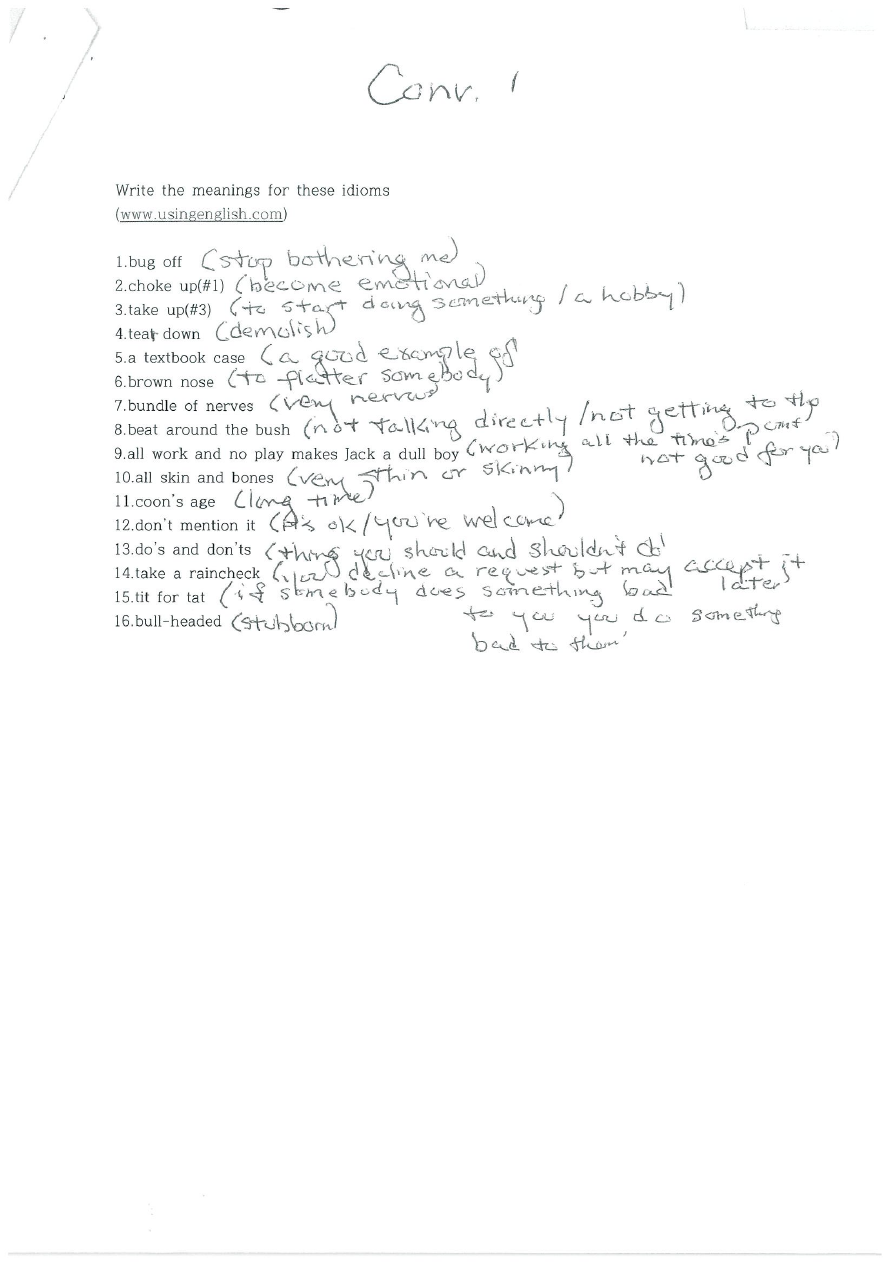 Conv. 1
Write the meanings for these idioms
(www.usingenglish.com)
1.bug off (stop bothering me)
2.choke up(#1) (become emotional)
3.take up(#3) (to start doing something / a hobby)
4.tear down (demolish)
5.a textbook case (a good example of)
6.brown nose (to flatter somebody)
7.bundle of nerves (very nervous
8.beat around the bush (not talking directly /not getting to the point
9.all work and no play makes Jack a dull boy (working all the time's not good for you)
10.all skin and bones (very thin or skinny)
11.coon's age (long time)
12.don't mention it (it's ok/you're welcome)
13.do's and don'ts (thing you should and shouldn't do)
14.take a raincheck (you decline a request but may accept it later)
15.tit for tat (if somebody does something bad
to you you do something
bad to them)
16.bull-headed (stubborn)